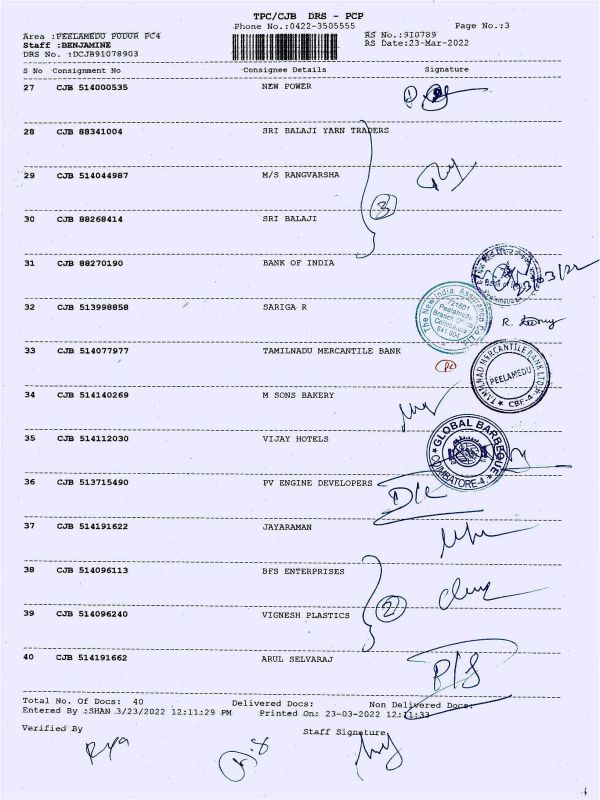 TPC/CJB DRS - PCP
Phone No.:0422-3505555 Page No.:3
Area :PEELAMEDU PUDUR PC4 RS No.:9I0789
Staff :BENJAMINE RS Date:23-Mar-2022
DRS No. :DCJB91078903
S No Consignment No Consignee Details Signature
27 CJB 514000535 NEW POWER
28 CJB 88341004 SRI BALAJI YARN TRADERS
29 CJB 514044987 M/S RANGVARSHA
3
30 CJB 88268414 SRI BALAJI
31 CJB 88270190 BANK OF INDIA
23/03/22
32 CJB 513998858 SARIGA R
The New India Assurance Co. Ltd.
721601
Peelamedu
Branch
Coimbatore
641 004
R.
33 CJB 514077977 TAMILNADU MERCANTILE BANK
TAMILNAD MERCANTILE BANK LTD.
PEELAMEDU
CBE-4
34 CJB 514140269 M SONS BAKERY
35 CJB 514112030 VIJAY HOTELS
GLOBAL BARBEQUE
COIMBATORE-4
36 CJB 513715490 PV ENGINE DEVELOPERS
37 CJB 514191622 JAYARAMAN
38 CJB 514096113 BFS ENTERPRISES
2
39 CJB 514096240 VIGNESH PLASTICS
40 CJB 514191662 ARUL SELVARAJ
P/S
Total No. Of Docs: 40 Delivered Docs: Non Delivered Docs:
Entered By :SHAN 3/23/2022 12:11:29 PM Printed On: 23-03-2022 12:11:33
Verified By Staff Signature